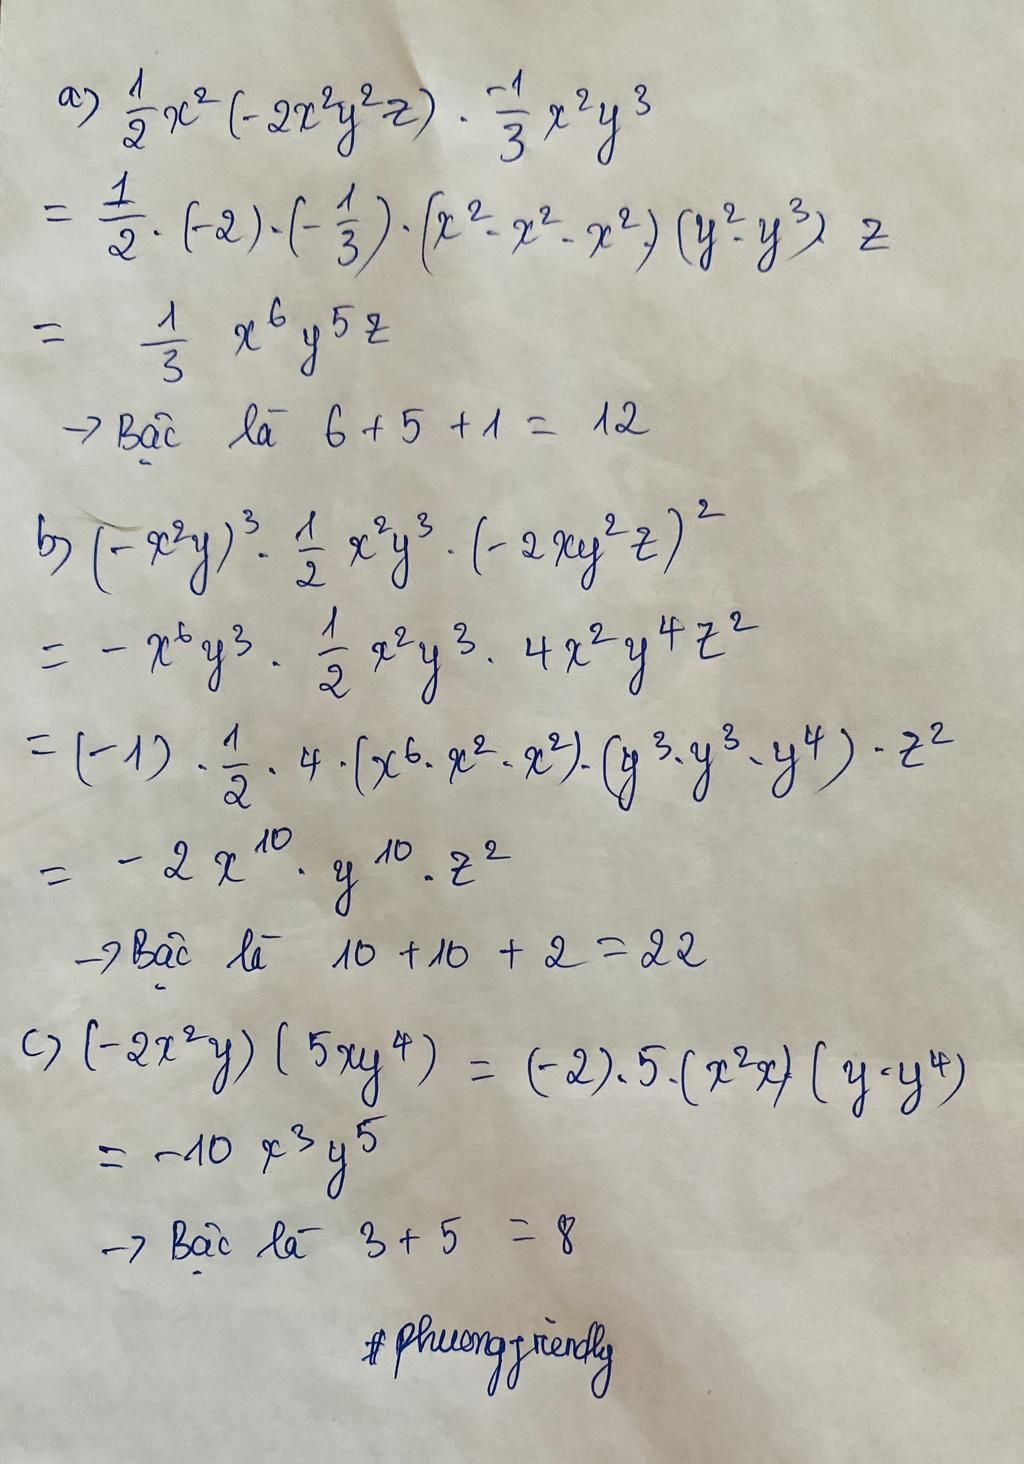 a) 1/2 x² (-2x²y²z) . -1/3 x²y³
= 1/2 . (-2) . (-1/3) . (x² . x² . x²) (y² . y³) z
= 1/3 x⁶y⁵z
→ Bậc là 6 + 5 + 1 = 12
b) (-x²y)³ . 1/2 x²y³ . (-2xy²z)²
= -x⁶y³ . 1/2 x²y³ . 4x²y⁴z²
= (-1) . 1/2 . 4 . (x⁶ . x² . x²) . (y³ . y³ . y⁴) . z²
= -2x¹⁰ . y¹⁰ . z²
→ Bậc là 10 + 10 + 2 = 22
c) (-2x²y) (5xy⁴) = (-2) . 5 . (x²x) (y . y⁴)
= -10 x³y⁵
→ Bậc là 3 + 5 = 8
#phuongfriendly